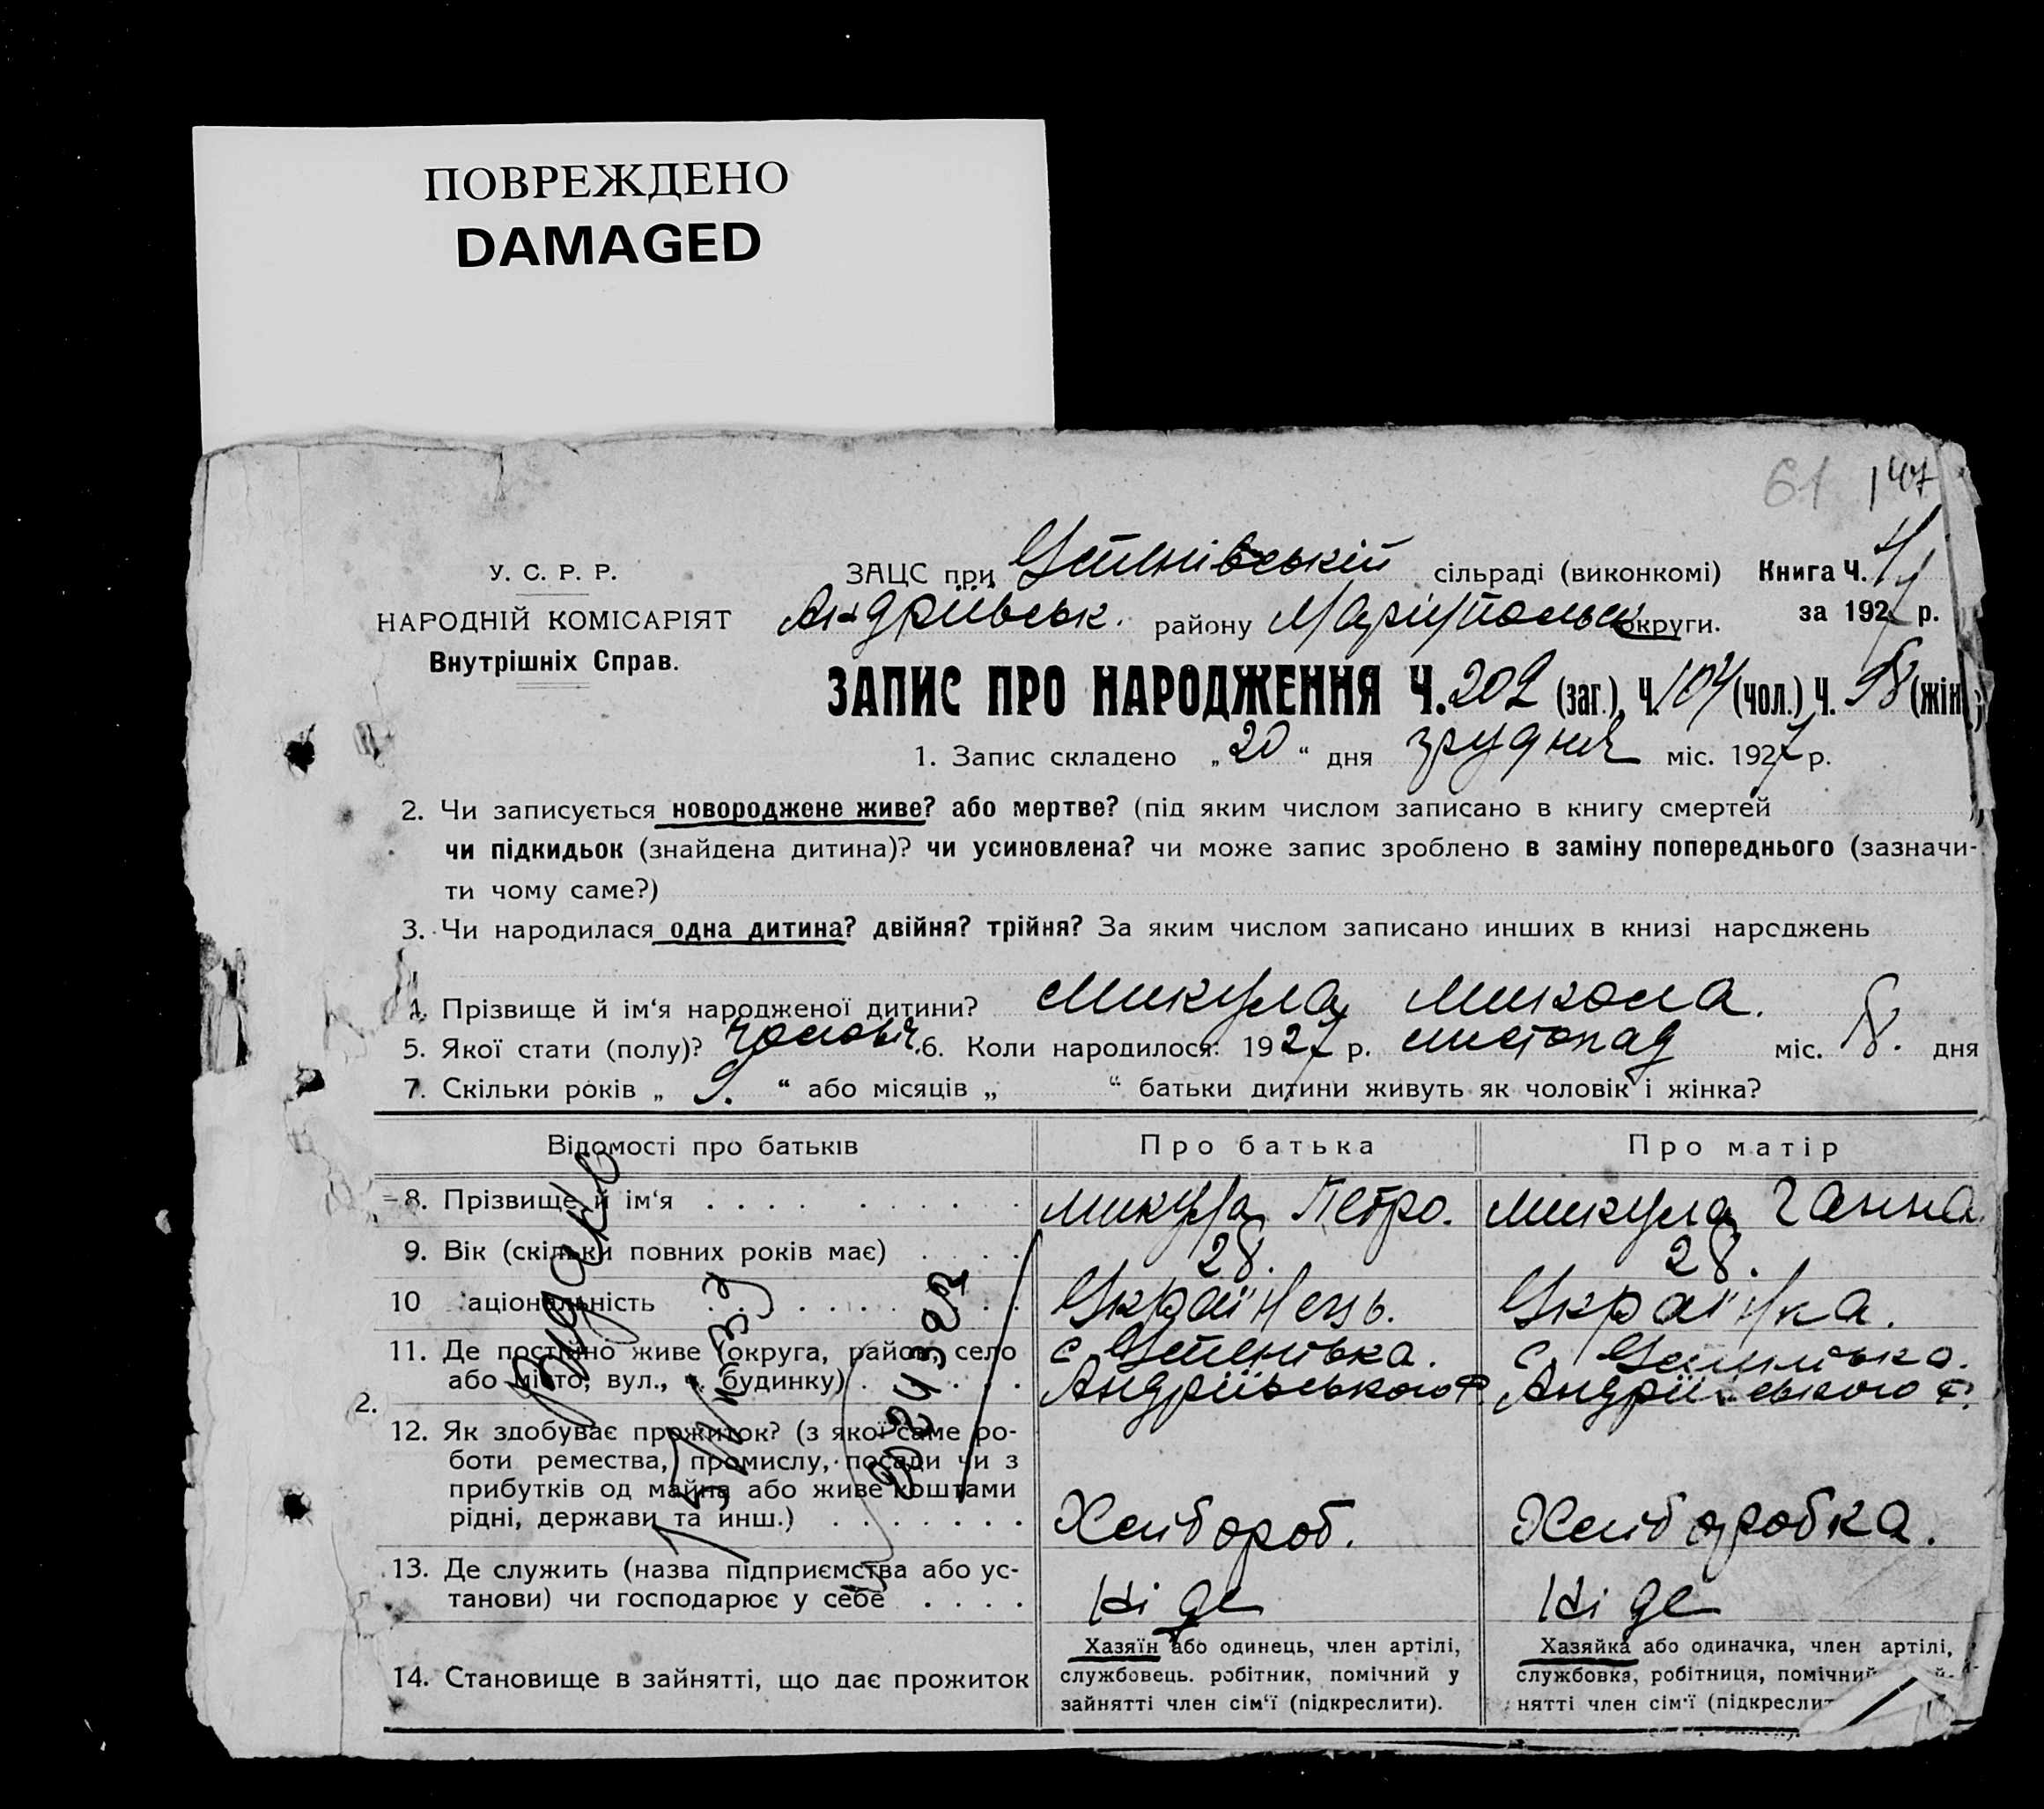 ПОВРЕЖДЕНО
DAMAGED
61 147
У. С. Р. Р.
НАРОДНІЙ КОМІСАРІЯТ
Внутрішніх Справ.
ЗАЦС при сільраді (виконкомі) Книга Ч.
Андріївськ. району Маріупольськ округи. за 1927 р.
ЗАПИС ПРО НАРОДЖЕННЯ Ч. 202 (заг.), Ч. 104 (чол.) Ч. 98 (жін.)
1. Запис складено „20“ дня грудня міс. 1927 р.
2. Чи записується новороджене живе? або мертве? (під яким числом записано в книгу смертей
чи підкидьок (знайдена дитина)? чи усиновлена? чи може запис зроблено в заміну попереднього (зазначи-
ти чому саме?)
3. Чи народилася одна дитина? двійня? трійня? За яким числом записано инших в книзі народжень
4. Прізвище й ім‘я народженої дитини? Микула Микола.
5. Якої стати (полу)? чолович. 6. Коли народилося: 1927 р. листопад міс. 8. дня
7. Скільки років „ 9. “ або місяців „ “ батьки дитини живуть як чоловік і жінка?
Відомості про батьків Про батька Про матір
8. Прізвище й ім‘я . . . . . . . . . . Микула Петро. Микула Ганна
9. Вік (скільки повних років має) . . . . 28. 28.
10 аціональність . . . . . . . . Українець. Українка.
11. Де постійно живе (округа, район, село
або місто, вул., ч. будинку) . . . . . . Андріївського Р. Андріївського Р.
2.
12. Як здобуває прожиток? (з якої саме ро-
боти ремества, промислу, посади чи з
прибутків од майна або живе коштами
рідні, держави та инш.) . . . . . . . Хлібороб. Хліборобка.
13. Де служить (назва підприємства або ус-
танови) чи господарює у себе . . . . Ні де Ні де
14. Становище в зайнятті, що дає прожиток
Хазяїн або одинець, член артілі,
службовець. робітник, помічний у
зайнятті член сім‘ї (підкреслити).
Хазяйка або одиначка, член артілі,
службовка, робітниця, помічний
нятті член сім‘ї (підкреслит
Видано